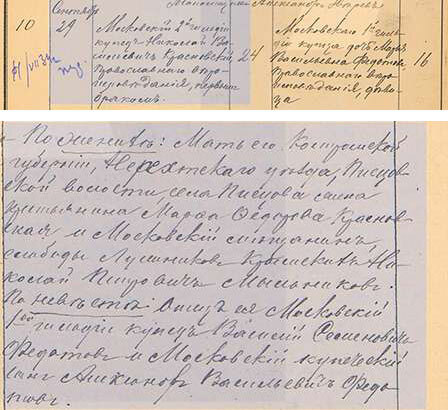 Сентября
10
29
Московскій 2й гильдіи
купецъ Николай Ва-
сильевичъ Красновскій,
православнаго вѣро-
исповѣданія, первымъ
бракомъ.
24
Московскаго 1й гиль-
діи купца дочь
Васильевна Федотова
православнаго вѣро-
исповѣданія, дѣви-
ца
16
По женихѣ: Мать его, Костромской
губерніи, Нерехтскаго уѣзда, Писцов-
ской волости, села Писцова
крестьянина Марѳа Ѳедорова Краснов-
ская и Московскій мѣщанинъ,
слободы Лужниковъ Крымскихъ Ни-
колай Петровичъ Мыльниковъ.
По невѣстѣ: Отецъ ея Московскій
1ой гильдіи купецъ Василій Семеновичъ
Федотовъ и Московскій купеческій
сынъ Александръ Васильевичъ Федо-
товъ.